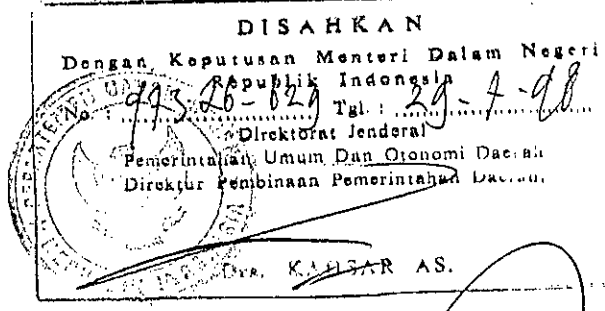 DISAHKAN
Dengan Keputusan Menteri Dalam Negeri
Republik Indonesia
No. : 973.26-629 Tgl : 29-7-98
Direktorat Jenderal
Pemerintahan Umum Dan Otonomi Daerah
Direktur Pembinaan Pemerintahan Daerah,
Drs. KAUSAR AS.